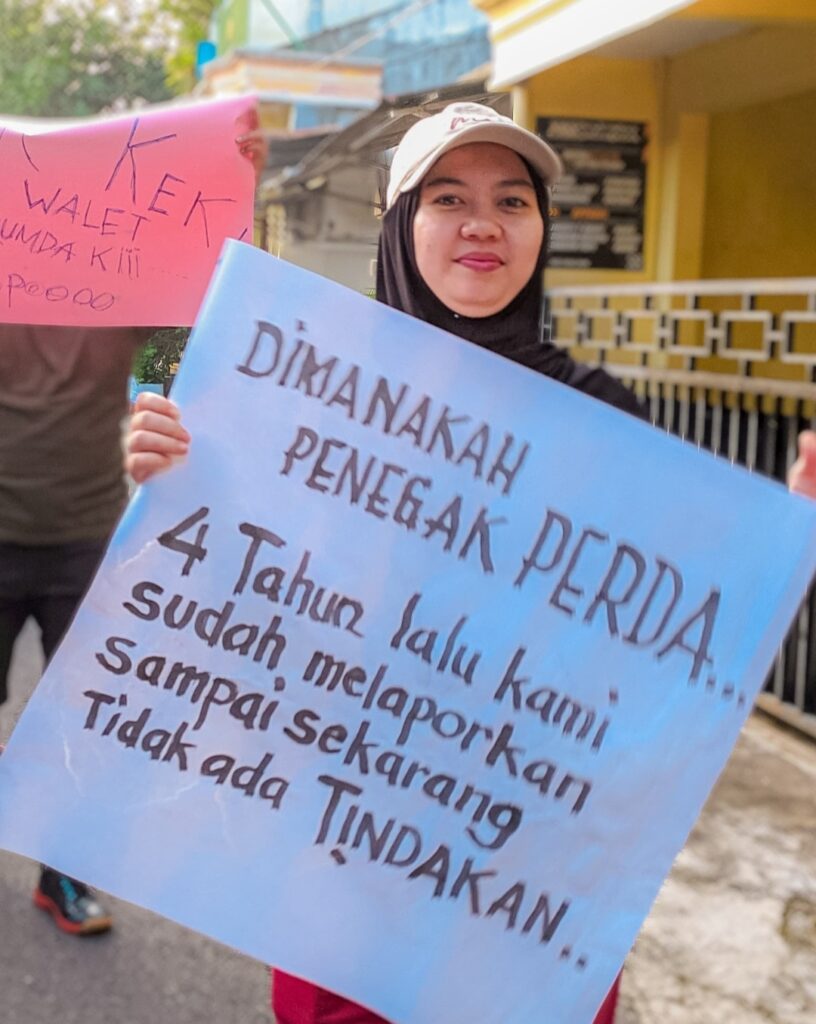 KEK
WALET
UMDA Kiii
DiMANAKAH
PENEGAK PERDA...
4 Tahun lalu kami
sudah melaporkan
sampai sekarang
Tidak ada TiNDAKAN..